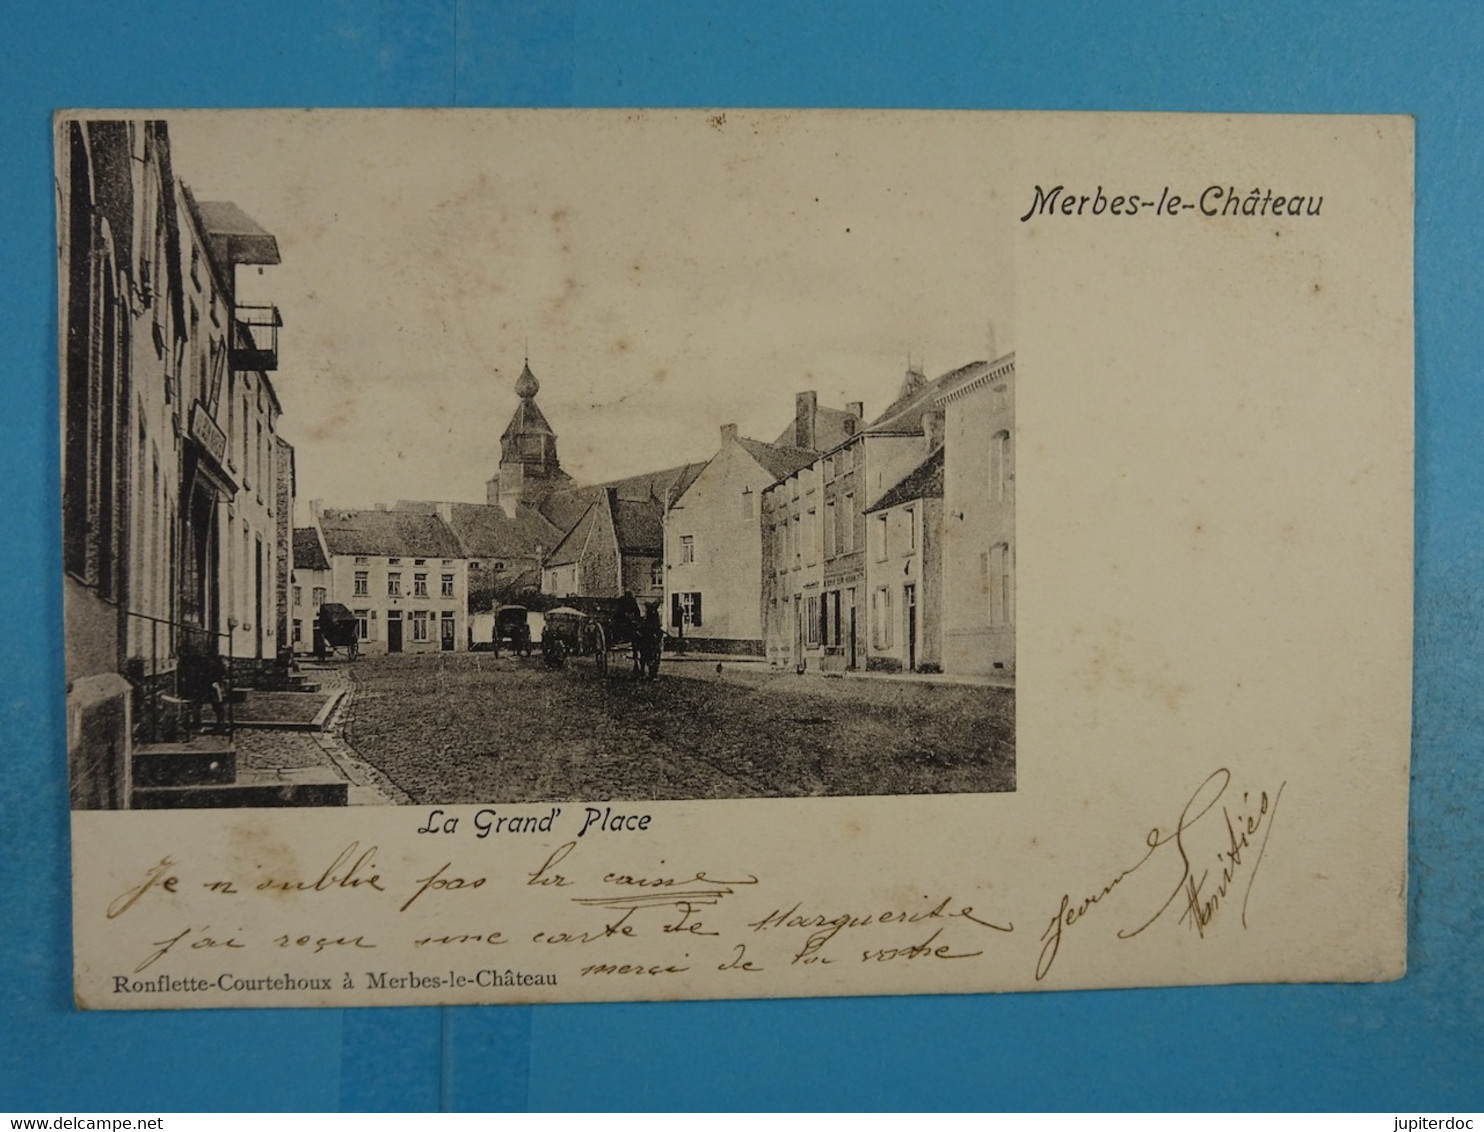 Merbes-le-Château
La Grand' Place
Je n'oublie pas la caisse
j'ai reçu une carte de Marguerite
merci de la votre
Ronflette-Courtehoux à Merbes-le-Château
www.delcampe.net
jupiterdoc